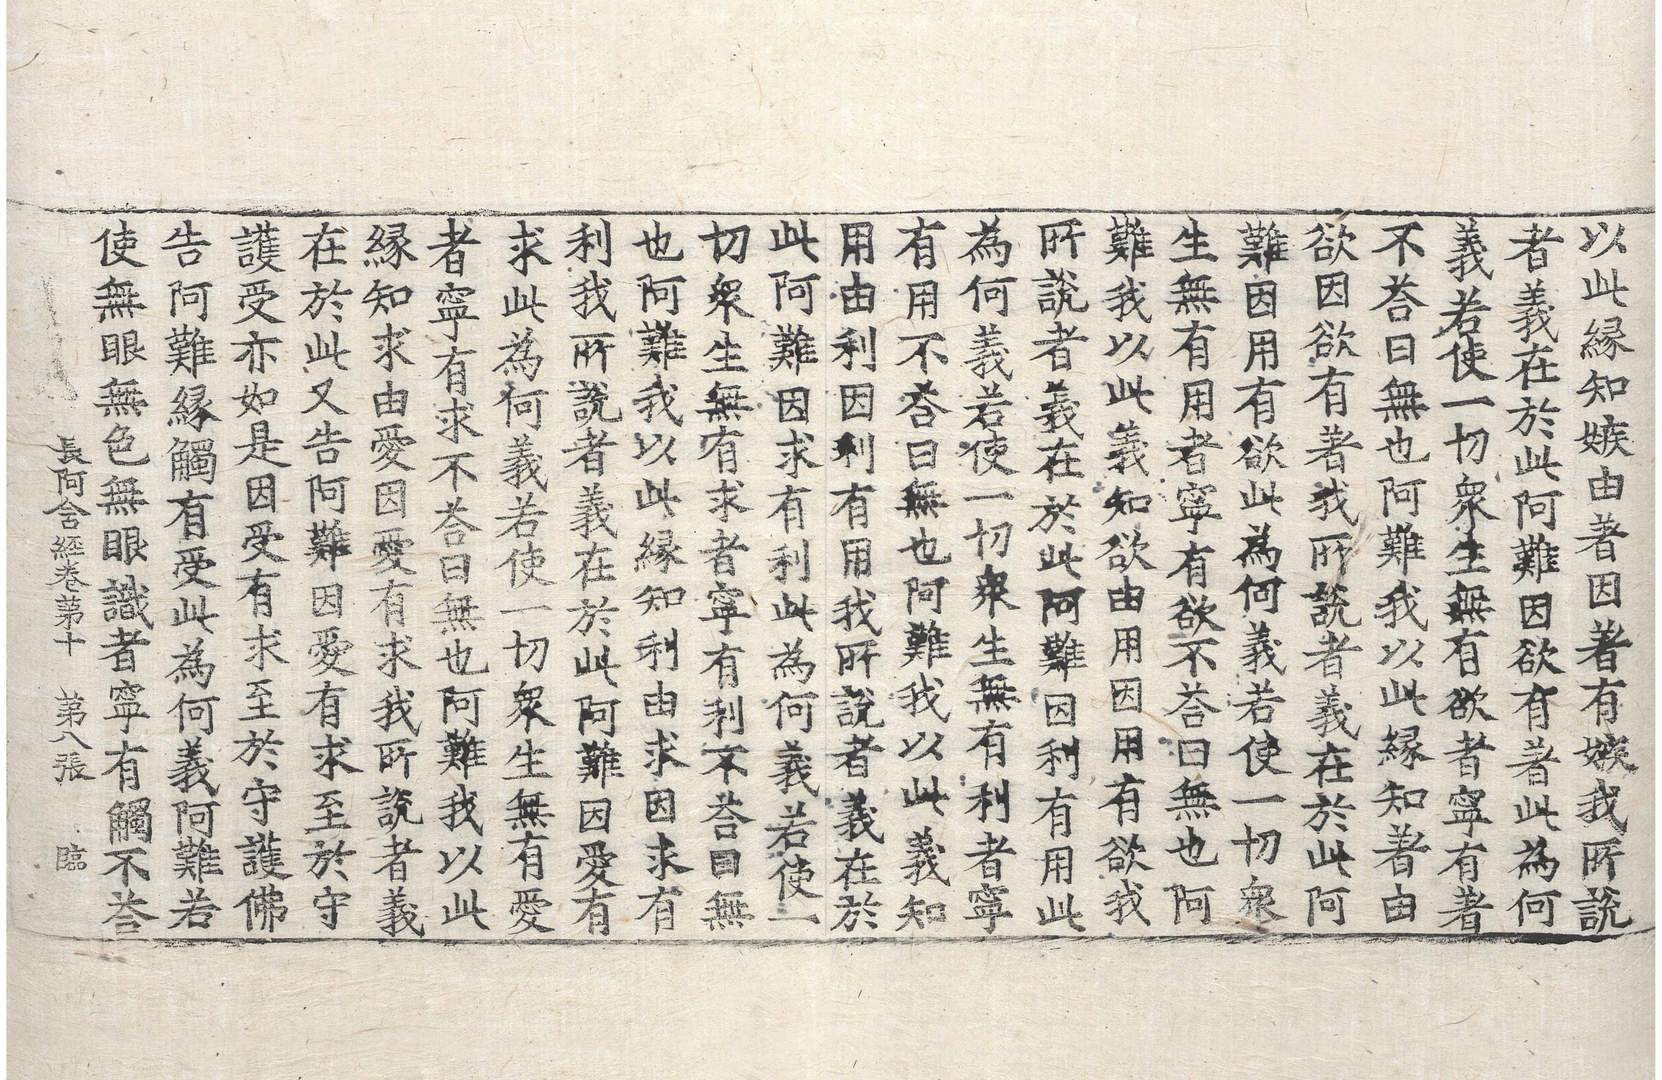 以此縁知嫉由著因著有嫉我所說
者義在於此阿難因欲有著此為何
義若使一切衆生無有欲者寧有著
不荅曰無也阿難我以此縁知著由
欲因欲有著我所說者義在於此阿
難因用有欲此為何義若使一切衆
生無有用者寧有欲不荅曰無也阿
難我以此義知欲由用因用有欲我
所說者義在於此阿難因利有用此
為何義若使一切衆生無有利者寧
有用不荅曰無也阿難我以此義知
用由利因利有用我所說者義在於
此阿難因求有利此為何義若使一
切衆生無有求者寧有利不荅曰無
也阿難我以此縁知利由求因求有
利我所說者義在於此阿難因愛有
求此為何義若使一切衆生無有愛
者寧有求不荅曰無也阿難我以此
縁知求由愛因愛有求我所說者義
在於此又告阿難因愛有求至於守
護受亦如是因受有求至於守護佛
告阿難縁觸有受此為何義阿難若
使無眼無色無眼識者寧有觸不荅
長阿含經卷第十 第八張 臨